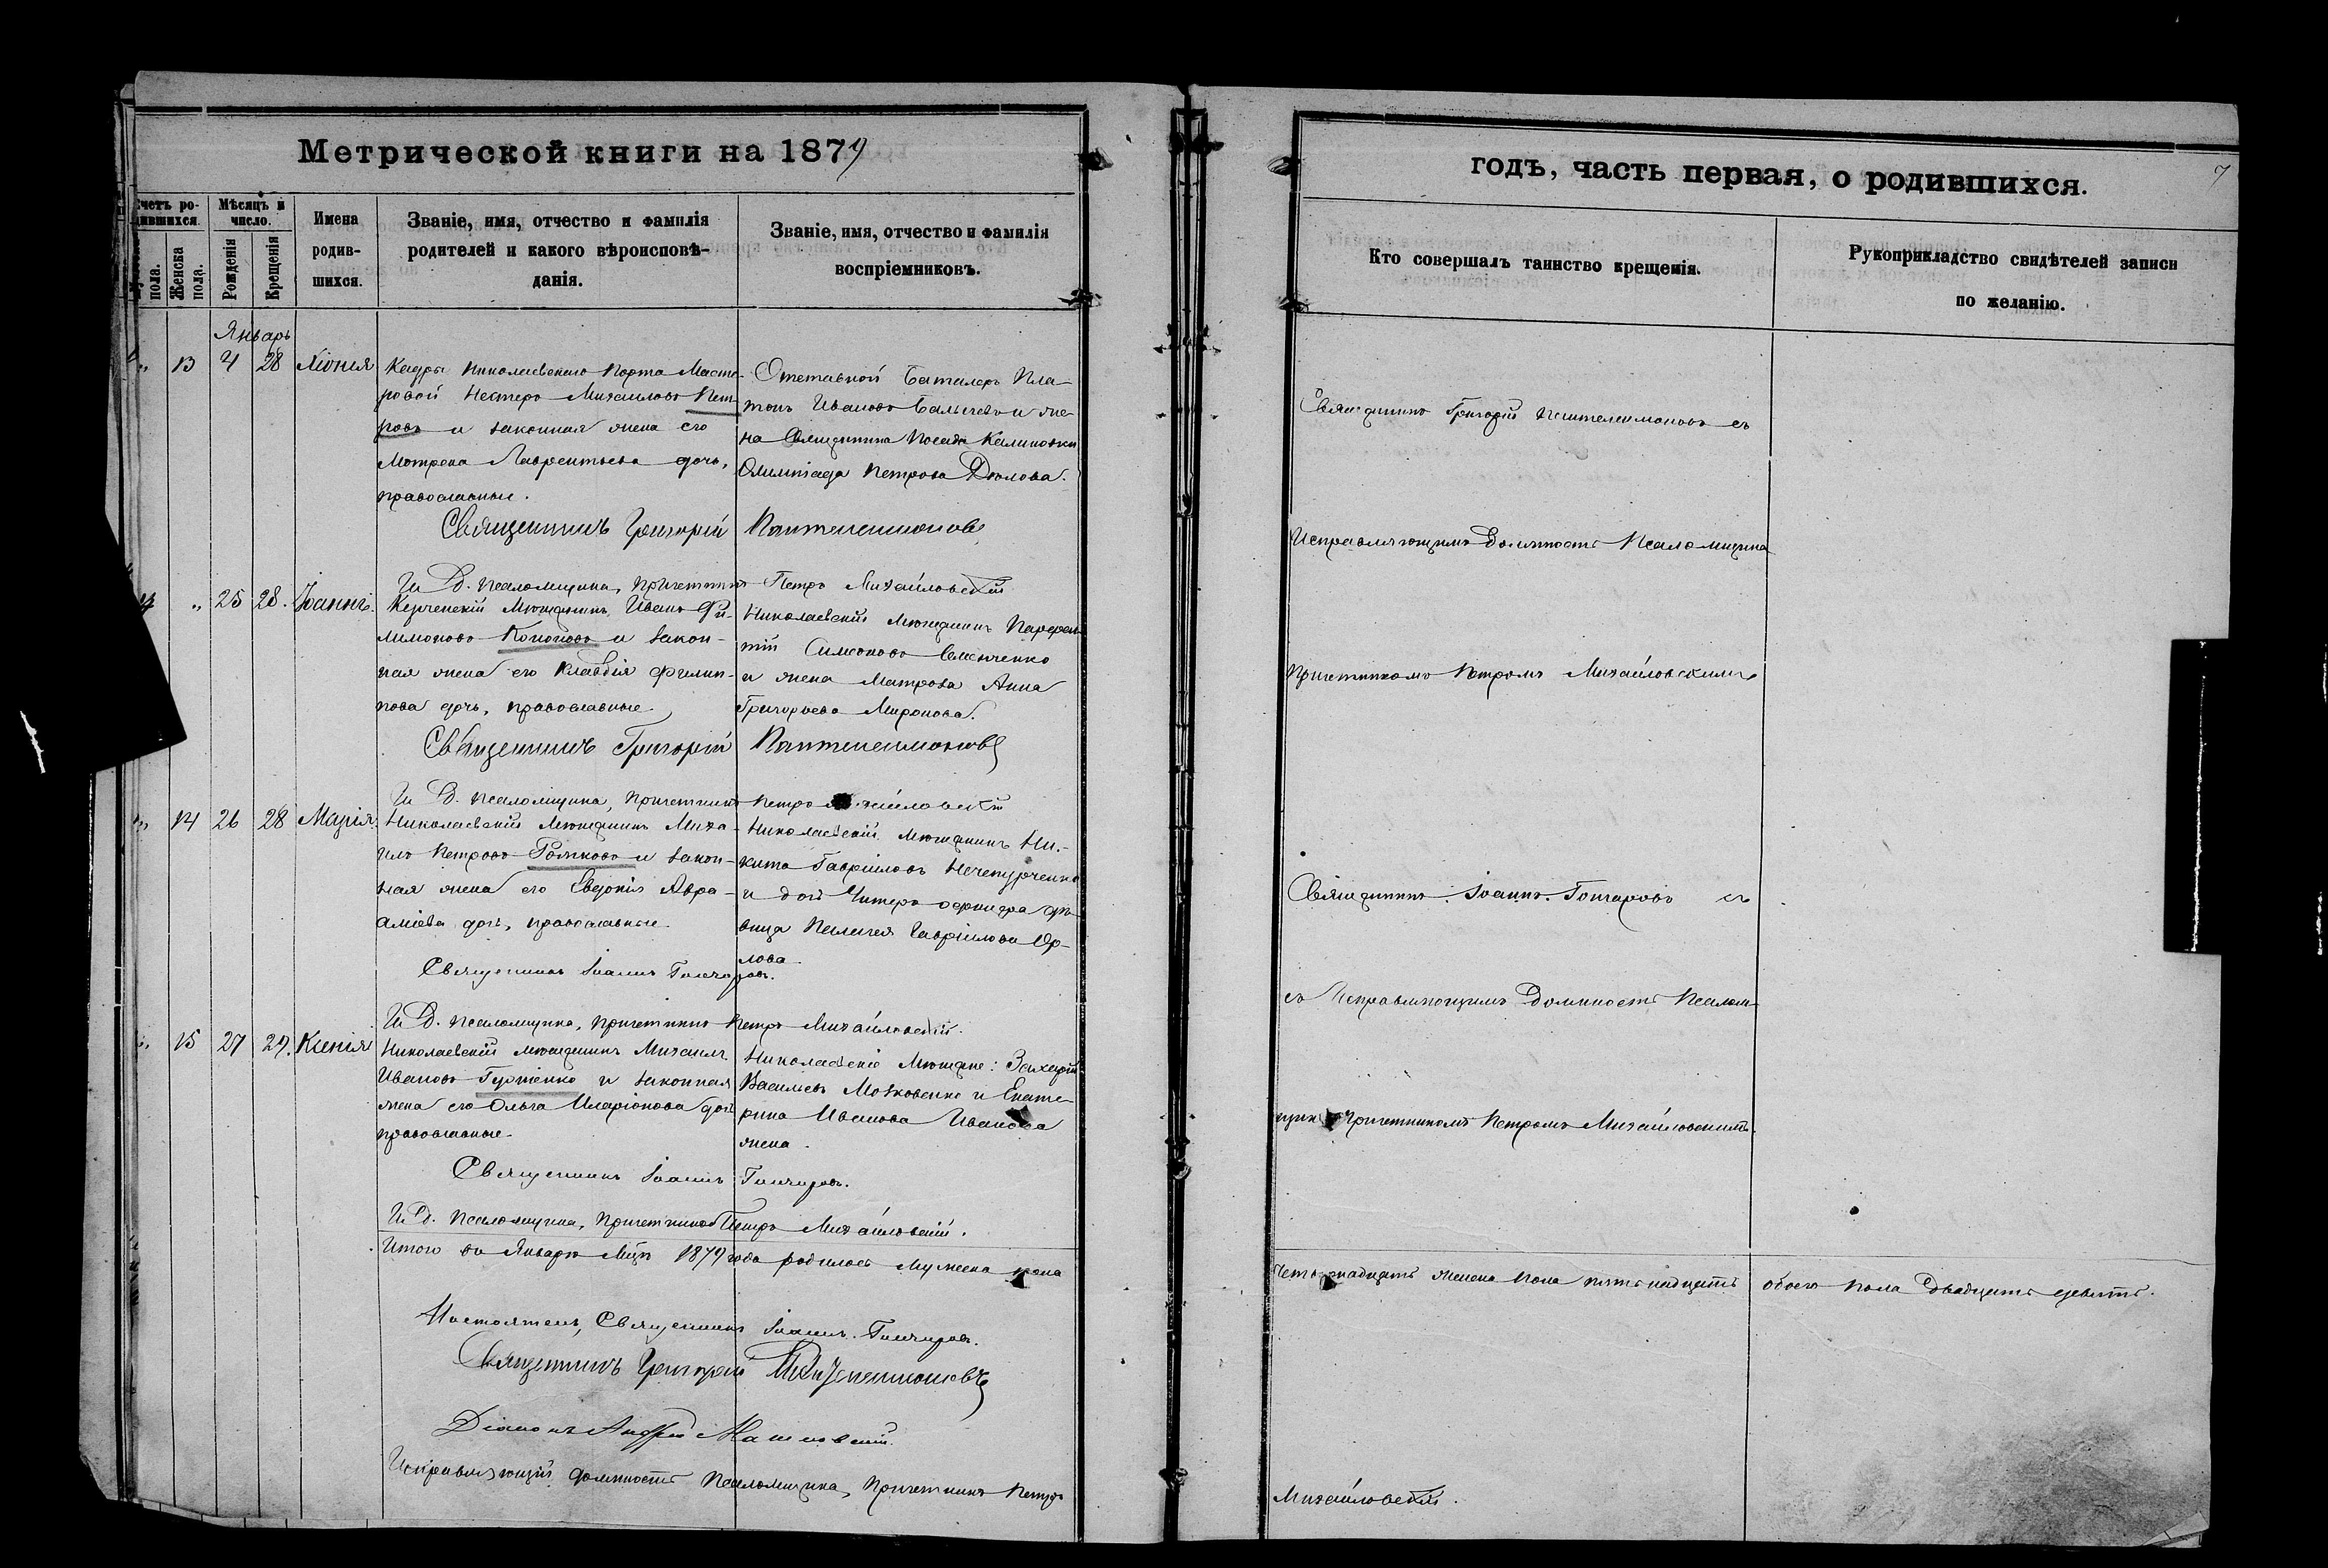 Метрической книги на 1879
годъ, часть первая, о родившихся.
7
Счетъ родившихся.
Мѣсяцъ и число.
Имена родившихся.
Званіе, имя, отчество и фамилія
родителей и какого вѣроисповѣ-
данія.
Званіе, имя, отчество и фамилія
воспріемниковъ.
Кто совершалъ таинство крещенія.
Рукоприкладство свидѣтелей записи
по желанію.
пола.
Женска пола.
Рожденія
Крещенія
Январь
„ 13 4 28 Хіонія
Кадра Николаевскаго Порта Масте-
ровой Нестеръ Михаиловъ Пет-
ровъ и законная жена его
Мотрона Лаврентьева дочь,
православные.
Отставной Баталеръ Пла-
тонъ Ивановъ и же-
на Посада Калиновки
Олимпіада Петрова
Священникъ Григорій Пантелеимоновъ
И Д. псаломщика, Причетникъ Петръ Михайловскій
Священникъ Григорій Пантелеимоновъ съ
Исправляющимъ Должность Псаломщика
Причетникомъ Петромъ Михайловскимъ
„ 25 28. Іоаннъ.
Керченскій Мѣщанинъ Иванъ Фи-
лимоновъ Кононовъ и закон-
ная жена его Клавдія Филип-
пова дочь, православные.
Николаевскій Мѣщанинъ Парфен-
тій Симоновъ Семенченко
и жена Матроса Анна
Григорьева Миронова.
Священникъ Григорій Пантелеимоновъ
И Д. псаломщика, Причетникъ Петръ Михайловскій
„ 14 26 28 Марія.
Николаевскій Мѣщанинъ Миха-
илъ Петровъ и закон-
ная жена его Евдокія Авра-
аміева дочь, православные.
Николаевскій Мѣщанинъ Ни-
кита Гавріиловъ Нечепурченко
и дочь Унтеръ офицера дѣ-
вица Пелагея Гавріилова Ор-
лова.
Священникъ Іоаннъ Гончаровъ.
И Д. псаломщика, Причетникъ Петръ Михайловскій.
Священникъ Іоаннъ Гончаровъ съ
съ Исправляющимъ Должность Псалом-
щика Причетникомъ Петромъ Михайловскимъ
„ 15 27 29. Ксенія
Николаевскій мѣщанинъ Михаилъ
Ивановъ и законная
жена его Ольга Иларіонова дочь
православные.
Николаевскіе Мѣщане: Захарій
Васильевъ Мозковенко и Екате-
рина Иванова Иванова
жена.
Священникъ Іоаннъ Гончаровъ.
И Д. Псаломщика, Причетникъ Петръ Михайловскій.
Итого въ Январѣ Мцѣ 1879 года родилось мужеска пола
четырнадцать женска пола пятьнадцать обоего пола двадцать девять.
Настоятель, Священникъ Іоаннъ Гончаровъ.
Священникъ Григорій Пантелеимоновъ
Діаконъ Андрей
Исправляющій должность Псаломщика, Причетникъ Петръ
Михайловскій.